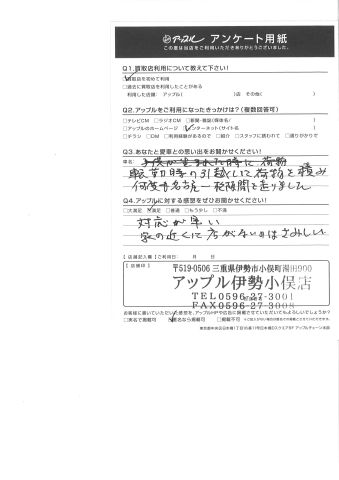 アップル アンケート用紙
この度は当店をご利用いただきありがとうございました。
Q1.買取店利用について教えて下さい!
☑買取店を初めて利用
□過去に買取店を利用したことがある
利用した店舗: アップル( )店 その他( )
Q2.アップルをご利用になったきっかけは?(複数回答可)
□テレビCM □ラジオCM □新聞・雑誌(媒体名: )
□アップルのホームページ ☑インターネット(サイト名 )
□チラシ □DM □利用経験があるので □紹介 □スタッフに誘われて □通りがかりで
Q3.あなたと愛車との思い出をお聞かせください!
車名:
子供が生まれた時に荷物
転勤時の引越しにて荷物を積み
何度も名古屋-松阪間を走りました
Q4.アップルに対する感想をぜひお聞かせください!
□大満足 ☑満足 □普通 □もう少し □不満
対応が早い
家の近くに店がないのはさみしい
【店舗記入欄】ご利用日: 月 日
【店舗印】
〒519-0506 三重県伊勢市小俣町湯田900
アップル伊勢小俣店
TEL0596-27-3001
FAX0596-27-3008
お客様に書いていただいた感想を、アップルHPや店舗に掲載させていただいてもよろしいでしょうか?
□実名で掲載可 ☑匿名なら掲載可 □掲載不可